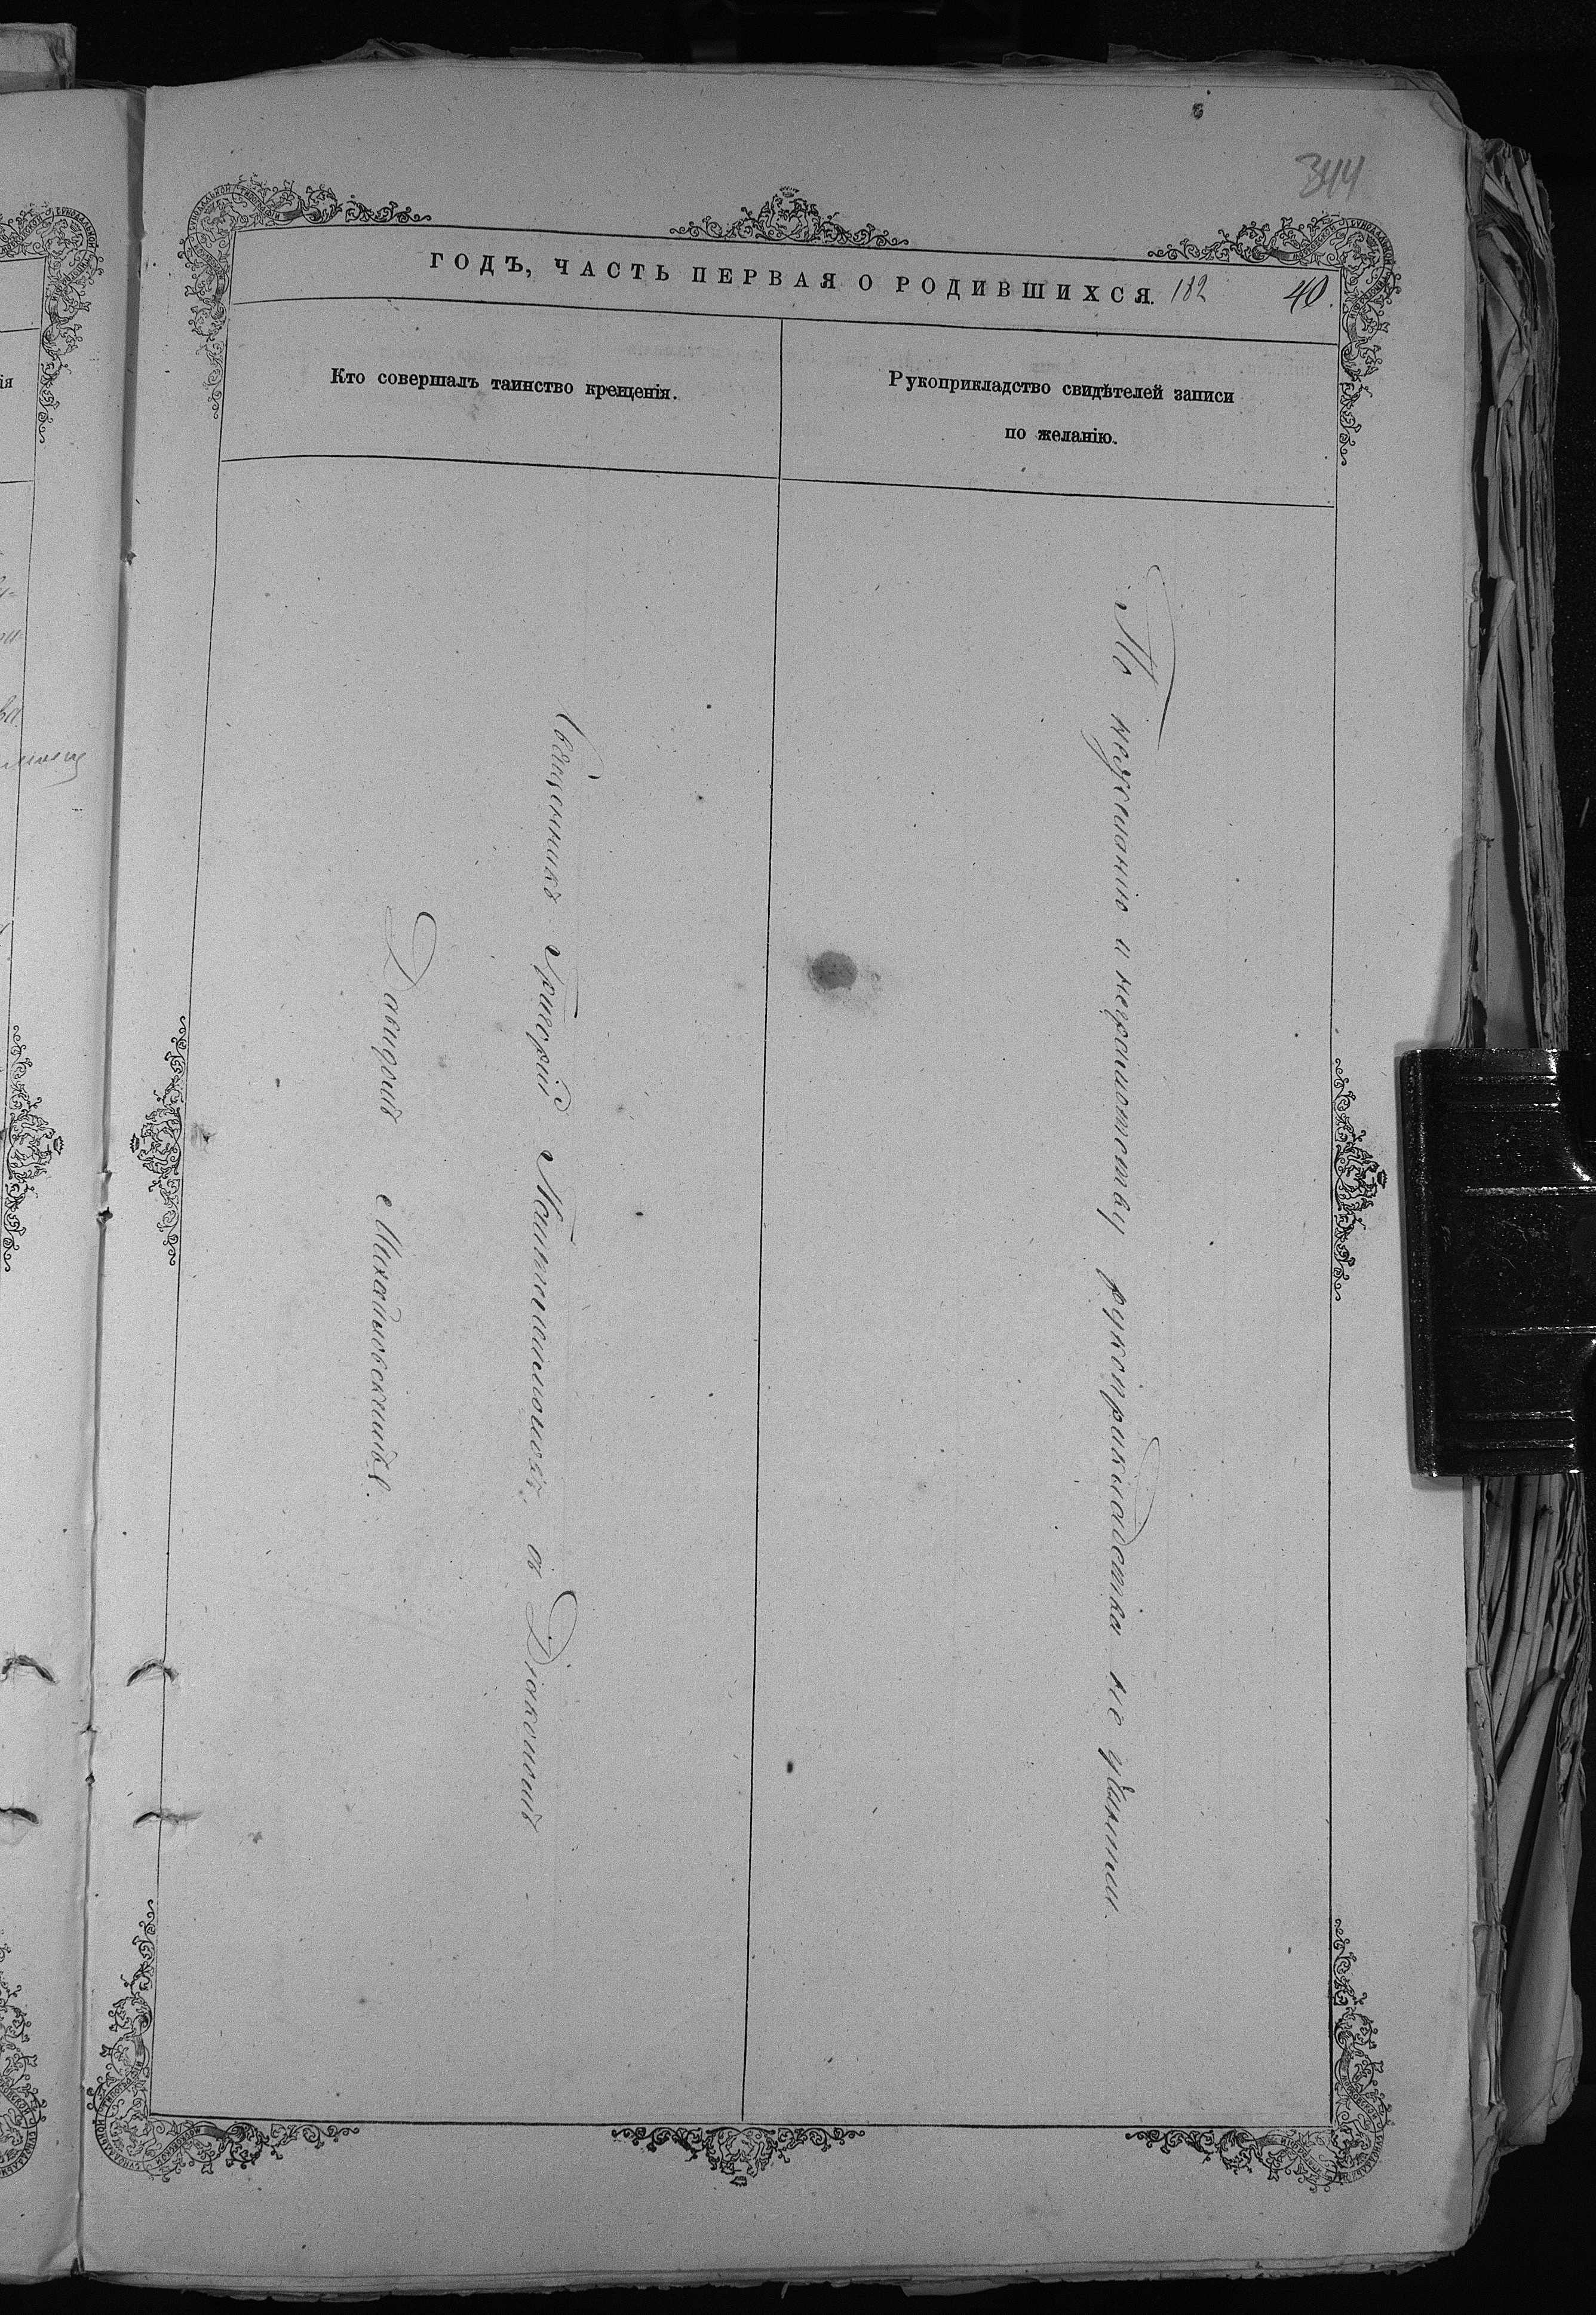 344
ГОДЪ, ЧАСТЬ ПЕРВАЯ О РОДИВШИХСЯ. 182 40.
Кто совершалъ таинство крещенія.
Рукоприкладство свидѣтелей записи
по желанію.
Священникъ Григорій съ Діакономъ
Давидомъ Михайловскимъ.
По нежеланію и неграмотству рукоприкладства не учинили.